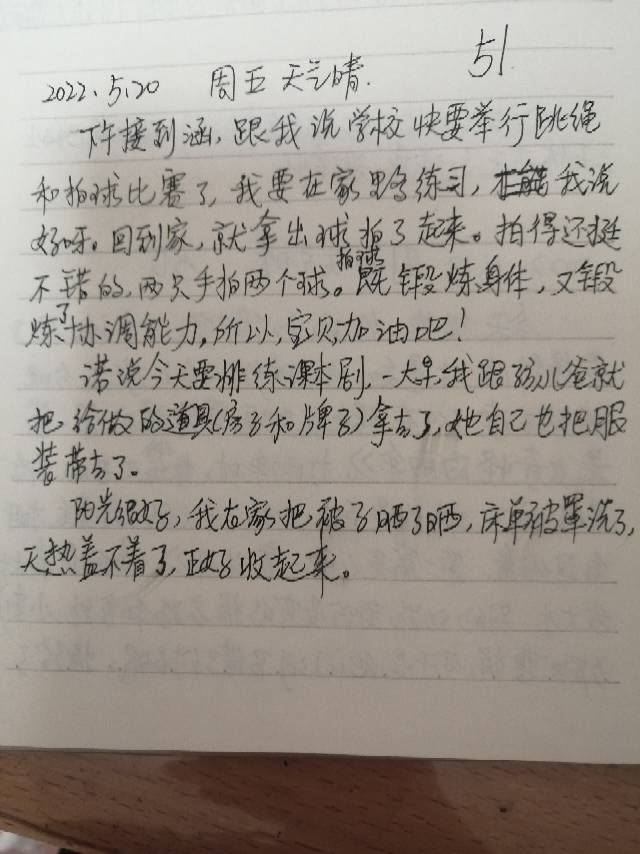 51
2022.5.20 周五 天气晴.
下午接到涵,跟我说学校快要举行跳绳
和拍球比赛了,我要在家里练习,我说
好呀。回到家,就拿出球拍了起来。拍得还挺
不错的,两只手拍两个球。拍球既锻炼身体,又锻
炼了协调能力,所以,宝贝,加油吧!
诺说今天要排练课本剧,一大早,我跟孩儿爸就
把给做的道具(房子和牌子)拿去了,她自己也把服
装带去了。
阳光很好,我在家把被子晒了晒,床单被罩洗了,
天热盖不着了,正好收起来。